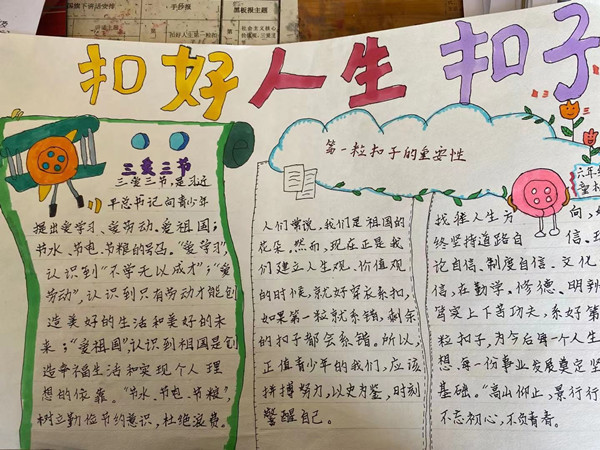 板报主题
扣好人生扣子
三爱三节
三爱三节,是习近
平总书记向青少年
提出爱学习、爱劳动、爱祖国;
节水、节电、节粮的号召。“爱学习”,
认识到“不学无以成才”;“爱
劳动”,认识到只有劳动才能创
造美好的生活和美好的未
来;“爱祖国”,认识到祖国是创
造幸福生活和实现个人理
想的依靠。“节水、节电、节粮”,
树立勤俭节约意识,杜绝浪费。
第一粒扣子的重要性
人们常说,我们是祖国的
花朵。然而,现在正是我
们建立人生观、价值观
的时候,就好穿衣系扣,
如果第一粒就系错,剩余
的扣子都会系错。所以,
正值青少年的我们,应该
拼搏努力,以史为鉴,时刻
警醒自己。
六年级
找准人生方向,
终坚持道路自信、
论自信、制度自信、文化
信,在勤学、修德、明辨
笃实上下苦功夫,系好第
粒扣子,为今后每一个人生
想、每一份事业发展奠定坚
基础。“高山仰止,景行行
不忘初心,不负青春。